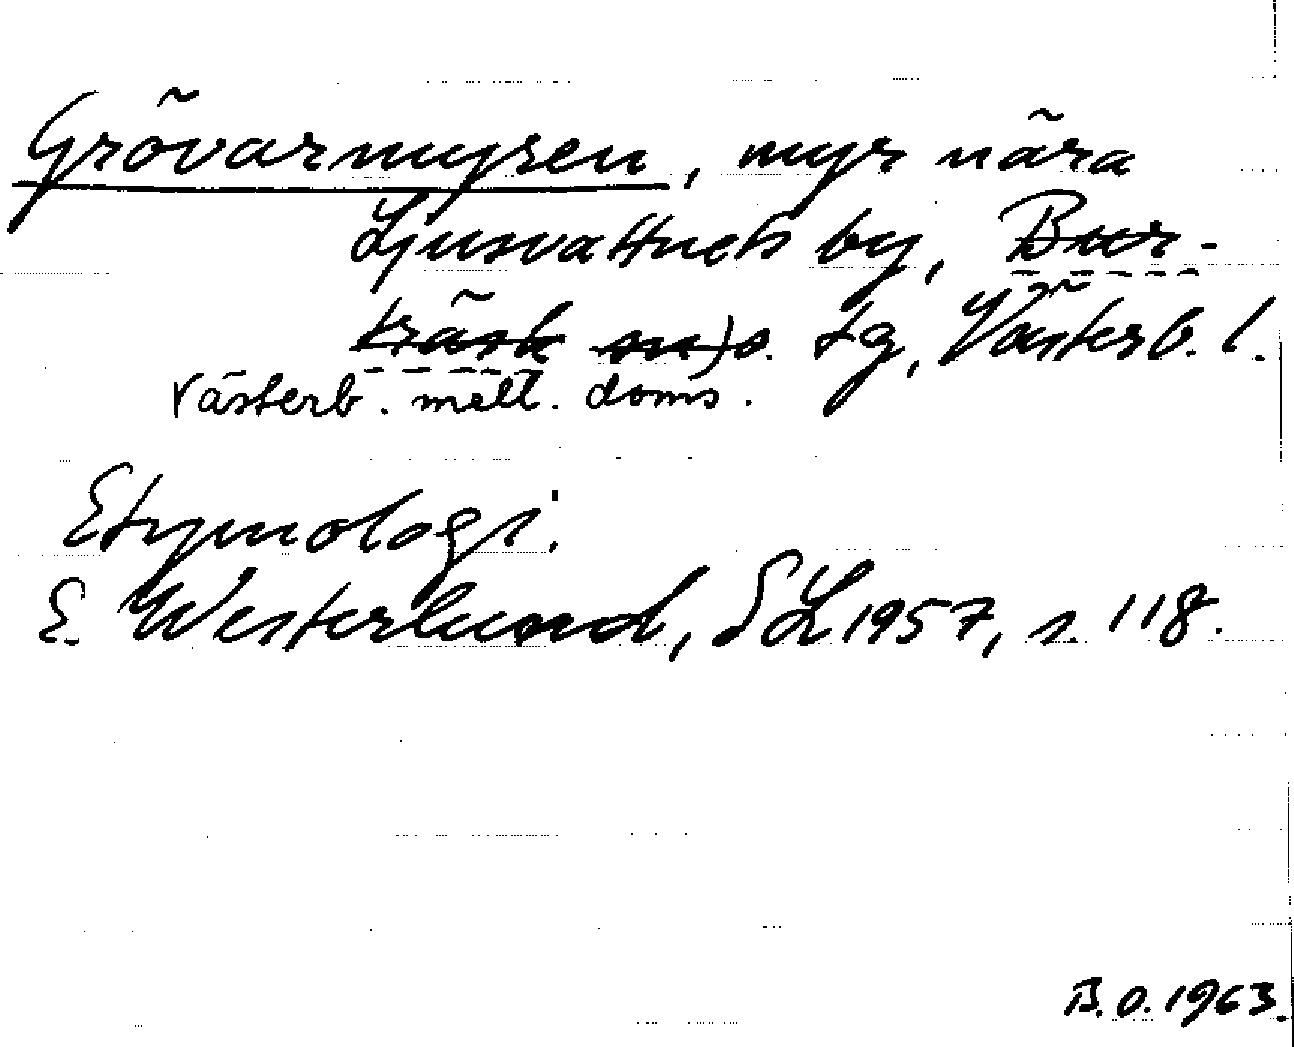 Grövarmyren, myr nära
Ljusvattnets by, Bur-
träsk sn)s. tg, Västerb. l.
Västerb. mell. doms.
Etymologi.
E. Westerlund, SL 1957, s. 118.
B.O. 1963.